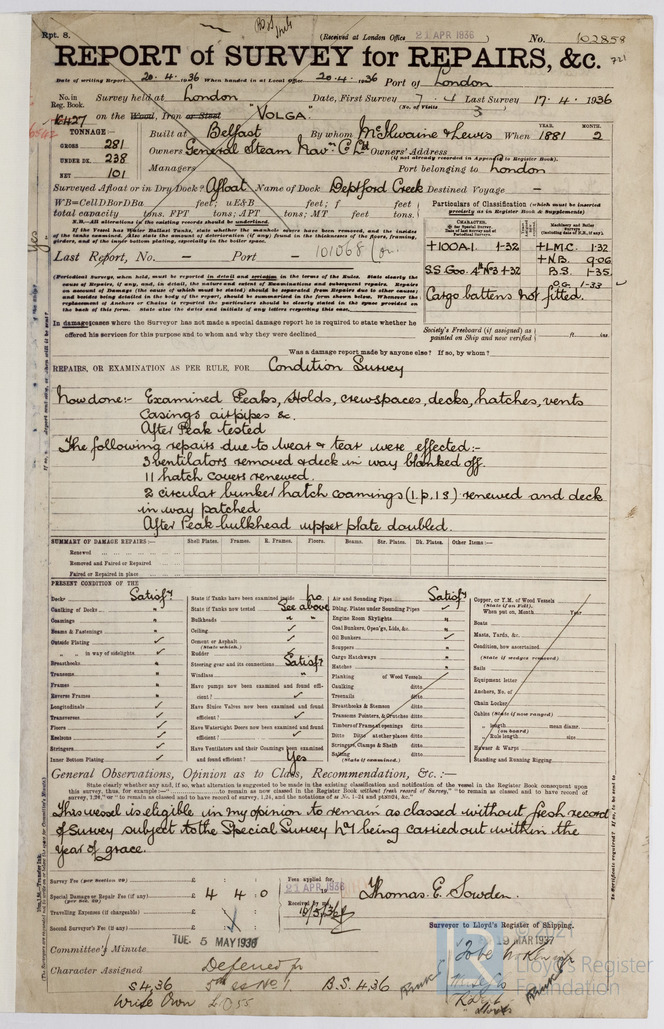 Rpt. 8.
(Received at London Office 21 APR 1936) No. 102858
REPORT of SURVEY for REPAIRS, &c.
Date of writing Report 20.4.1936 When handed in at Local Office 20.4.1936 Port of London
No. in Reg. Book. Survey held at London Date, First Survey 7.4 Last Survey 17.4.1936
(No. of Visits 3
on the Wood, Iron or Steel "VOLGA"
TONNAGE:—
GROSS 281
UNDER DK. 238
NET 101
Built at Belfast By whom McIlwaine & Lewis When 1881 MONTH. 2
Owners General Steam Navn Co Ltd Owners' Address
(if not already recorded in Appendix to Register Book).
Managers Port belonging to London
Surveyed Afloat or in Dry Dock? Afloat Name of Dock Deptford Creek Destined Voyage —
WB=CellDBorDBa feet; uE&B feet; f feet
total capacity tons. FPT tons; APT tons; MT feet tons.
N.B.—All alterations in the existing records should be underlined.
If the Vessel has Water Ballast Tanks, state whether the manhole covers have been removed, and the insides
of the tanks examined. Also state the amount of deterioration (if any) found in the thicknesses of the floors, framing,
girders, and of the inner bottom plating, especially in the boiler space.
Last Report, No. — Port — 101068
Particulars of Classification (which must be inserted
precisely as in Register Book & Supplements)
+100A·1 1·32 +L.M.C. 1·32
+N.B. 9·06
S.S. Goo. 4th No3 1·32 B.S. 1·35
O.G. 1·33
Cargo battens not fitted.
(Periodical Surveys, when held, must be reported in detail and seriatim in the terms of the Rules. State clearly the
cause of Repairs, if any, and, in detail, the nature and extent of Examinations and subsequent repairs. Repairs
on account of Damage (the cause of which must be stated) should be separated from Repairs due to other causes;
and besides being detailed in the body of the report, should be summarized in the form shewn below. Whenever the
replacement of Anchors or Chains is reported the particulars should be clearly stated in the space provided on
the back of this form. State also the dates and initials of any letters respecting this case.
In damage cases where the Surveyor has not made a special damage report he is required to state whether he
offered his services for this purpose and to whom and why they were declined
Society's Freeboard (if assigned) as
painted on Ship and now verified ft. ins.
Was a damage report made by anyone else? If so, by whom?
REPAIRS, OR EXAMINATION AS PER RULE, FOR Condition Survey
Now done:- Examined Peaks, Holds, crewspaces, decks, hatches, vents
casings airpipes &c.
After Peak tested
The following repairs due to wear & tear were effected:-
3 ventilators removed & deck in way blanked off.
11 hatch covers renewed.
2 circular bunker hatch coamings (1.p, 1 s) renewed and deck
in way patched
After Peak bulkhead upper plate doubled.
SUMMARY OF DAMAGE REPAIRS:— Shell Plates. Frames. R. Frames. Floors. Beams. Str. Plates. Dk. Plates. Other Items:—
Renewed
Removed and Faired or Repaired
Faired or Repaired in place
PRESENT CONDITION OF THE
Decks Satisfy
Caulking of Decks "
Coamings "
Beams & Fastenings "
Outside Plating ✓
" " in way of sidelights
Breasthooks
Transoms
Frames
Reverse Frames
Longitudinals
Transverses
Floors
Keelsons
Stringers
Inner Bottom Plating
State if Tanks have been examined inside no
State if Tanks now tested See above
Bulkheads
Ceiling
Cement or Asphalt
(State which.)
Rudder
Steering gear and its connections Satisfy
Windlass "
Have pumps now been examined and found efficient?
Have Sluice Valves now been examined and found
efficient?
Have Watertight Doors now been examined and found
efficient?
Have Ventilators and their Coamings been examined
and found efficient? Yes
Air and Sounding Pipes Satisfy
Dblng. Plates under Sounding Pipes
Engine Room Skylights
Coal Bunkers, Open'gs, Lids, &c.
Oil Bunkers
Scuppers
Cargo Hatchways
Hatches
Planking of Wood Vessels
Caulking ditto
Treenails ditto
Breasthooks & Stemson ditto
Transoms Pointers, & Crutches ditto
Timbers of Frame at openings ditto
Ditto Ditto at other places ditto
Stringers, Clamps & Shelfs ditto
Salting ditto
(State if examined.)
Copper, or Y.M. of Wood Vessels
(State if on Felt).
When put on, Month Year
Boats
Masts, Yards, &c.
Condition, how ascertained
(State if wedges removed)
Sails
Equipment letter
Anchors, No. of
Chain Locker
Cables (State if now ranged)
" length mean diamr.
(on board)
" Rule length size
Hawser & Warps
Standing and Running Rigging
General Observations, Opinion as to Class, Recommendation, &c.:—
State clearly whether any, and if so, what alteration is suggested to be made in the existing classification and notification of the vessel in the Register Book consequent upon
This vessel is eligible in my opinion to remain as classed without fresh record
of Survey subject to the Special Survey No1 being carried out within the
year of grace.
Survey Fee (per Section 29) £ : :
Special Damage or Repair Fee (if any) £ 4 4 0
(per Sec. 29)
Travelling Expenses (if chargeable) £ : :
Second Surveyor's Fee (if any) £ : :
Fees applied for,
21 APR 1936
Received by me,
Thomas E. Sowden.
Surveyor to Lloyd's Register of Shipping.
Committee's Minute TUE. 5 MAY 1936
19 MAR 1937
Character Assigned Deferred for
S 4,36 5th SS No 1. B.S. 4,36
Write Own
© 2021
Lloyd's Register
Foundation